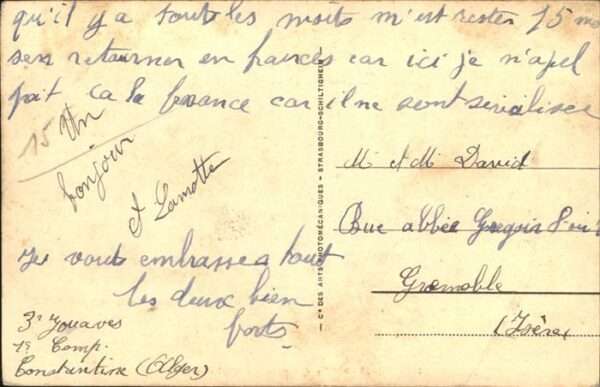 qu'il y a touts les moits m'est rester 15 mo
sen retourner en francès car ici je n'apel
pait ca la france car il ne sont
15
Un
bonjour
Lamotte
Je vouts embrasse a tout
les deux bien
forts
3e Zouaves
Comp.
Constantine (Alger)
Cie DES ARTS PHOTOMÉCANIQUES - STRASBOURG-SCHILTIGHEIM
Mr et Me David
Rue abbée Gregoir
Grenoble
(Isère)